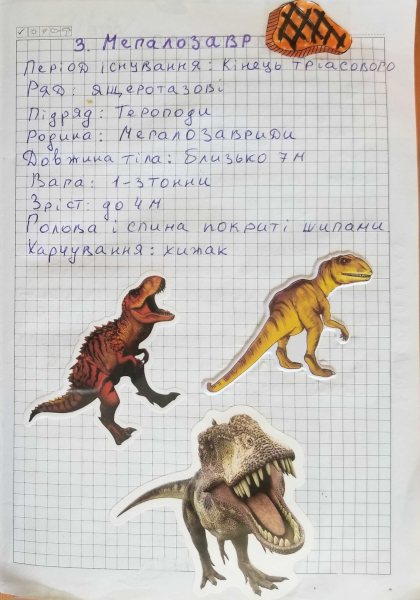 3. Мегалозавр
Період існування: Кінець тріасового
Ряд: ящеротазові
Підряд: Тероподи
Родина: Мегалозавриди
Довжина тіла: близько 7 м
Вага: 1-3 тонни
Зріст: до 4 м
Голова і спина покриті шипами
Харчування: хижак